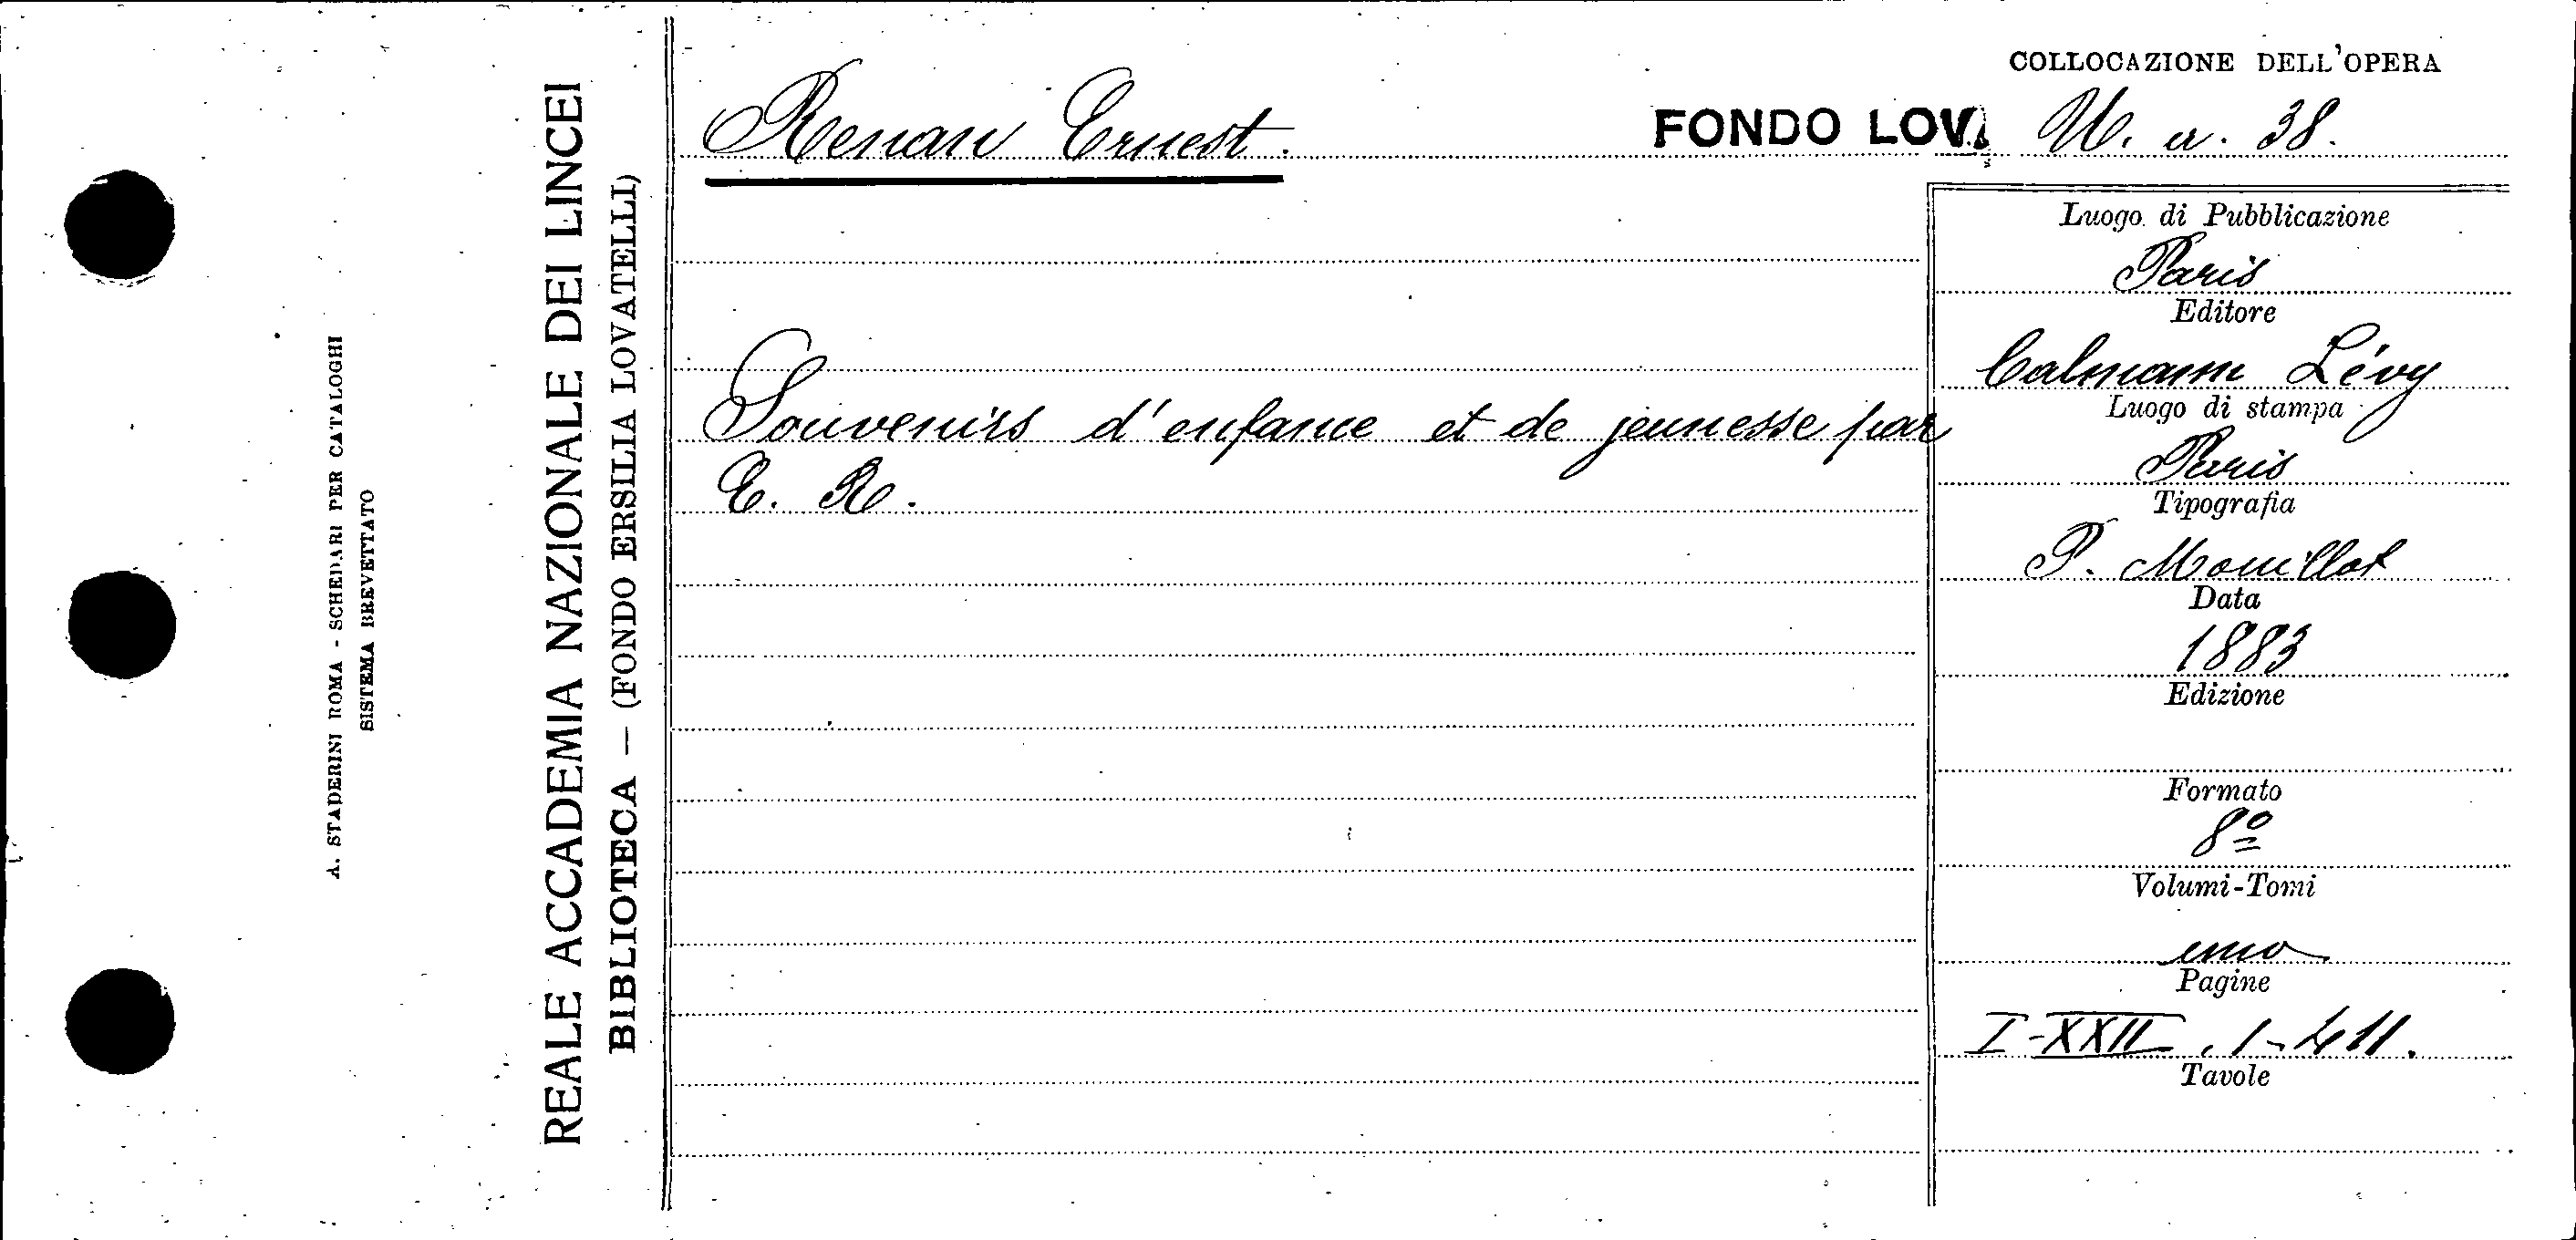 A. STADERINI ROMA - SCHEDARI PER CATALOGHI
SISTEMA BREVETTATO
REALE ACCADEMIA NAZIONALE DEI LINCEI
BIBLIOTECA — (FONDO ERSILIA LOVATELLI)
Renan Ernest.
Souvenirs d'enfance et de jeunesse par
E. R.
COLLOCAZIONE DELL'OPERA
FONDO LOV. U. a. 38.
Luogo di Pubblicazione
Paris
Editore
Calmann Lévy
Luogo di stampa
Paris
Tipografia
P. Mouillot
Data
1883
Edizione
Formato
8º
Volumi-Tomi
uno
Pagine
I-XXII, 1-411.
Tavole